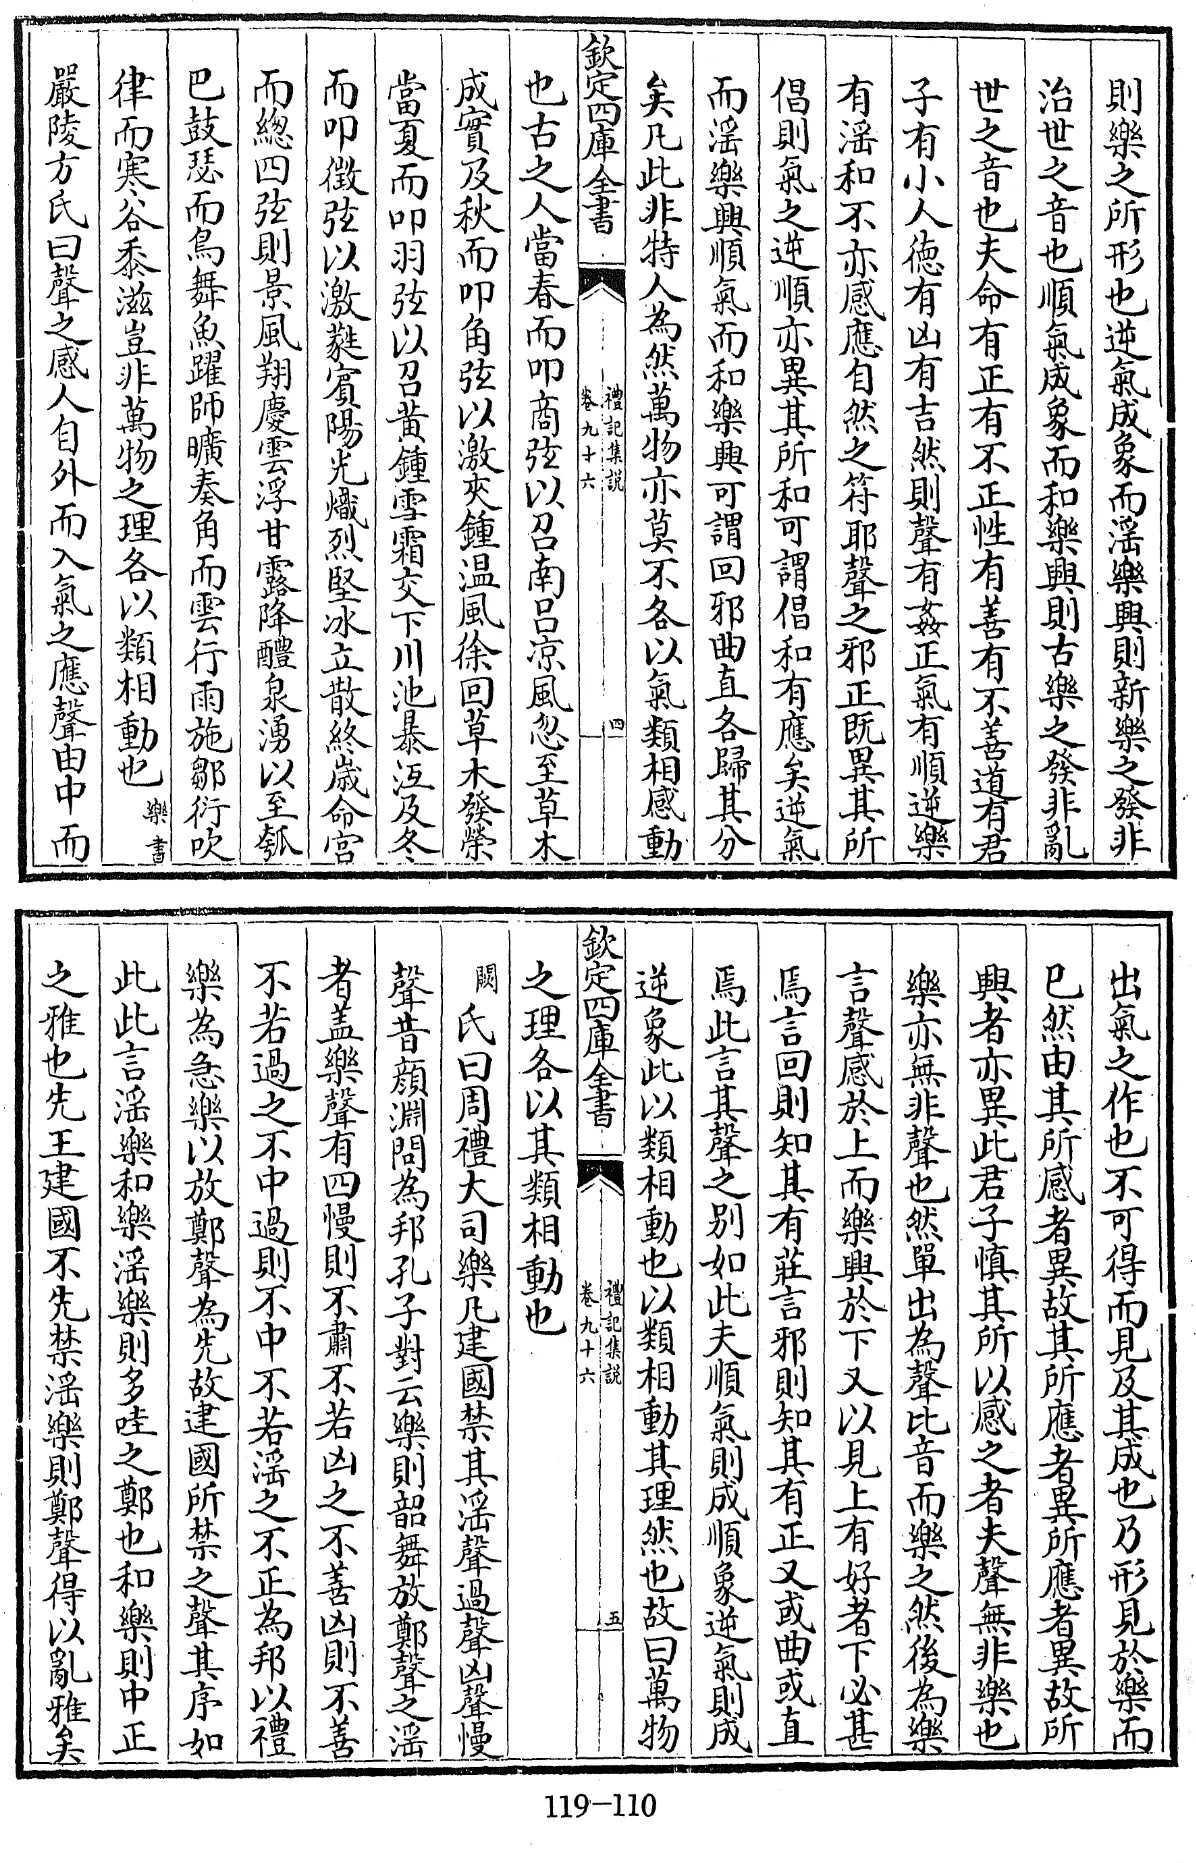 則樂之所形也逆氣成象而滛樂興則新樂之發非
治世之音也順氣成象而和樂興則古樂之發非亂
世之音也夫命有正有不正性有善有不善道有君
子有小人徳有凶有吉然則聲有姦正氣有順逆樂
有滛和不亦感應自然之符耶聲之邪正既異其所
倡則氣之逆順亦異其所和可謂倡和有應矣逆氣
而滛樂興順氣而和樂興可謂回邪曲直各歸其分
矣凡此非特人為然萬物亦莫不各以氣類相感動
欽定四庫全書
禮記集説
卷九十六
四
也古之人當春而叩商弦以召南吕凉風忽至草木
成實及秋而叩角弦以激夾鍾温風徐回草木發榮
當夏而叩羽弦以召黄鍾雪霜交下川池暴沍及冬
而叩徵弦以激蕤賓陽光熾烈堅冰立散終歳命宫
而總四弦則景風翔慶雲浮甘露降醴泉湧以至瓠
巴鼓瑟而鳥舞魚躍師曠奏角而雲行雨施鄒衍吹
律而寒谷黍滋豈非萬物之理各以類相動也樂書
嚴陵方氏曰聲之感人自外而入氣之應聲由中而
出氣之作也不可得而見及其成也乃形見於樂而
已然由其所感者異故其所應者異所應者異故所
興者亦異此君子慎其所以感之者夫聲無非樂也
樂亦無非聲也然單出為聲比音而樂之然後為樂
言聲感於上而樂興於下又以見上有好者下必甚
焉言回則知其有莊言邪則知其有正又或曲或直
焉此言其聲之别如此夫順氣則成順象逆氣則成
逆象此以類相動也以類相動其理然也故曰萬物
欽定四庫全書
禮記集説
卷九十六
五
之理各以其類相動也
闕氏曰周禮大司樂凡建國禁其滛聲過聲凶聲慢
聲昔顔淵問為邦孔子對云樂則韶舞放鄭聲之滛
者盖樂聲有四慢則不肅不若凶之不善凶則不善
不若過之不中過則不中不若滛之不正為邦以禮
樂為急樂以放鄭聲為先故建國所禁之聲其序如
此此言滛樂和樂滛樂則多哇之鄭也和樂則中正
之雅也先王建國不先禁滛樂則鄭聲得以亂雅矣
119-110